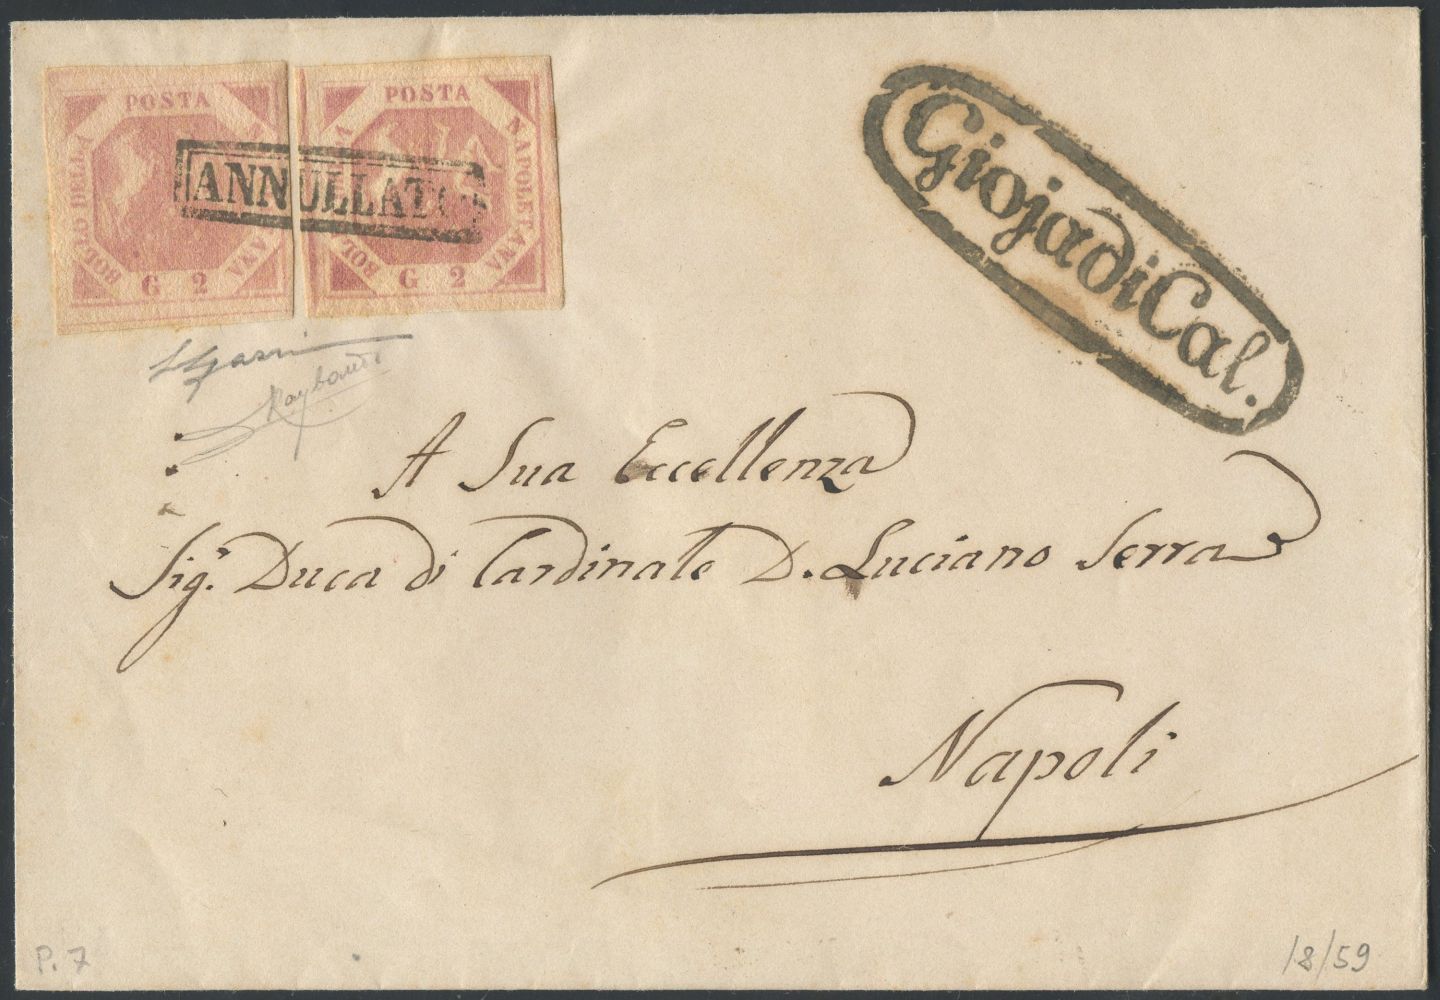 POSTA
BOLLO DELLA
ANA
G 2
POSTA
NAPOLETANA
BOL
G 2
ANNULLATO
GiojadiCal.
Raybaudi
A Sua Eccellenza
Sig.r Duca di Cardinale D. Luciano Serra
Napoli
P. 7
/8/59